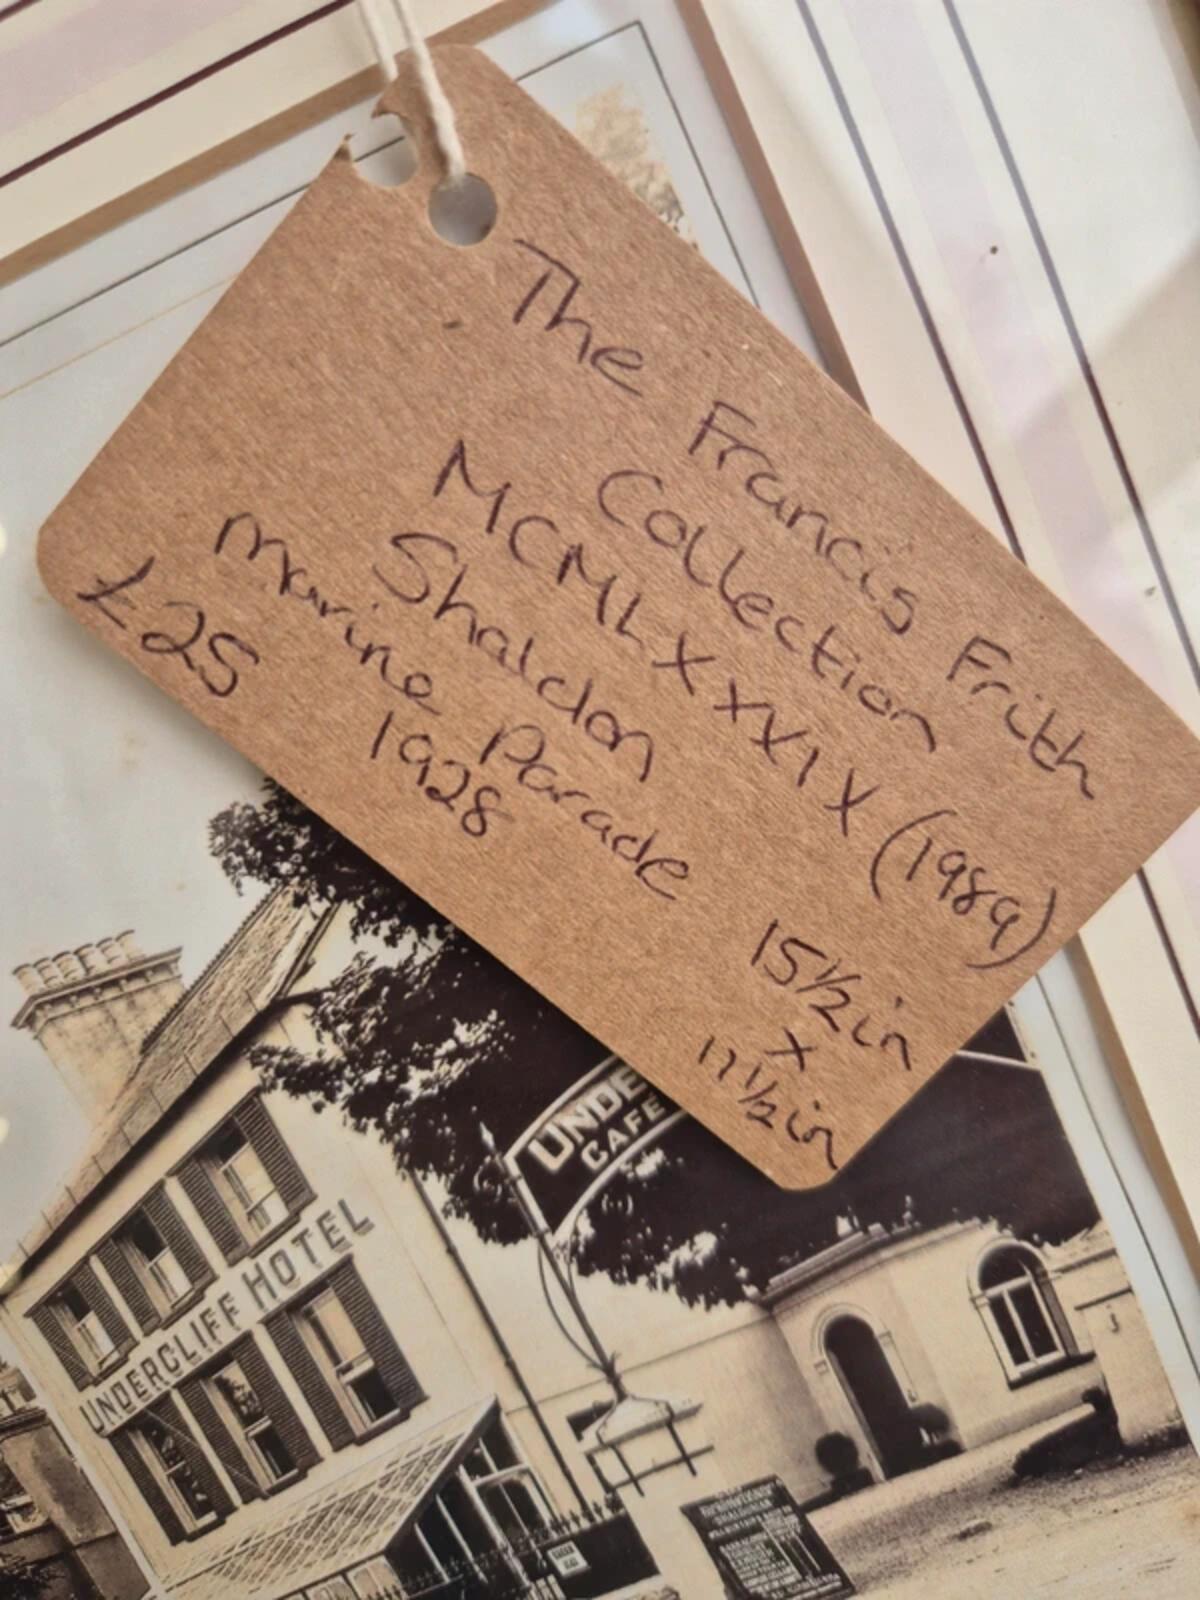 The Francis Frith
Collection
MCMLXXXIX (1989)
Shaldon
Marine Parade
1928
£25
15½in
x
17½in
UNDE
CAFE
UNDERCLIFF HOTEL